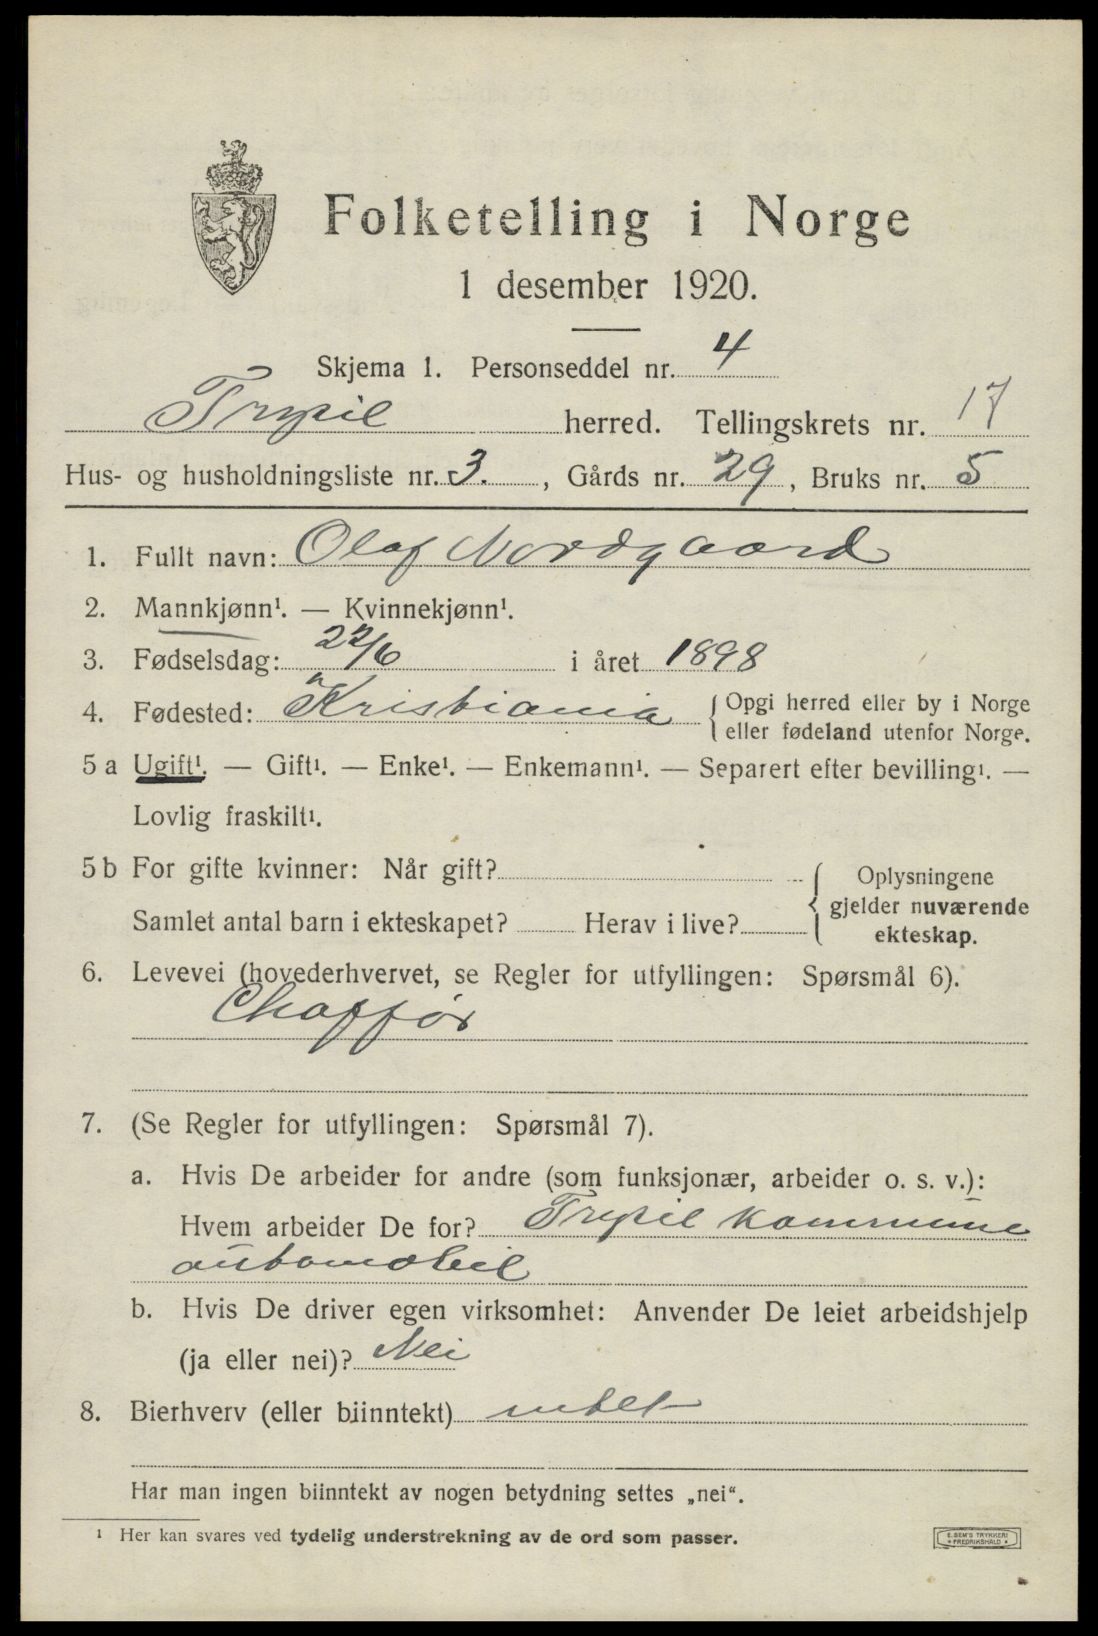 Folketelling i Norge
1 desember 1920.
Skjema 1. Personseddel nr. 4
Trysil herred. Tellingskrets nr. 17
Hus- og husholdningsliste nr. 3., Gårds nr. 29, Bruks nr. 5
1. Fullt navn: Olaf Nordgaard
2. Mannkjønn¹. — Kvinnekjønn¹.
3. Fødselsdag: 22/6 i året 1898
4. Fødested: Kristiania { Opgi herred eller by i Norge
eller fødeland utenfor Norge.
5 a Ugift¹. — Gift¹. — Enke¹. — Enkemann¹. — Separert efter bevilling¹. —
Lovlig fraskilt¹.
5 b For gifte kvinner: Når gift? { Oplysningene
gjelder nuværende
Samlet antal barn i ekteskapet? Herav i live?
ekteskap.
6. Levevei (hovederhvervet, se Regler for utfyllingen: Spørsmål 6).
Chaffør
7. (Se Regler for utfyllingen: Spørsmål 7).
a. Hvis De arbeider for andre (som funksjonær, arbeider o. s. v.):
Hvem arbeider De for? Trysil kommune
automobil
b. Hvis De driver egen virksomhet: Anvender De leiet arbeidshjelp
(ja eller nei)? Nei
8. Bierhverv (eller biinntekt) intet
Har man ingen biinntekt av nogen betydning settes „nei“.
¹ Her kan svares ved tydelig understrekning av de ord som passer.
E. SEM'S TRYKKERI
FREDRIKSHALD